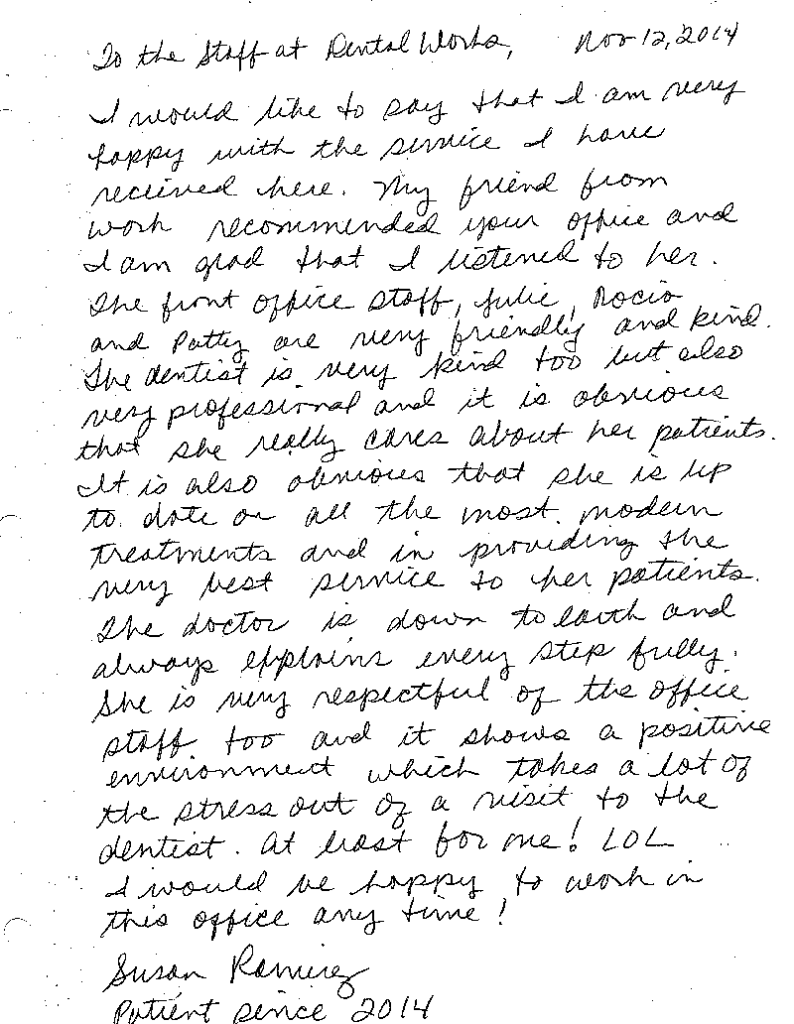 To the Staff at Dental Works, Nov 12, 2014
I would like to say that I am very
happy with the service I have
received here. My friend from
work recommended your office and
I am glad that I listened to her.
The front office staff, Julie, Rocio
and Patty are very friendly and kind.
The dentist is very kind too but also
very professional and it is obvious
that she really cares about her patients.
It is also obvious that she is up
to date on all the most modern
treatments and in providing the
very best service to her patients.
The doctor is down to earth and
always explains every step fully.
She is very respectful of the office
staff too and it shows a positive
environment which takes a lot of
the stress out of a visit to the
dentist. At least for me! LOL
I would be happy to work in
this office any time!
Susan Ramirez
Patient since 2014